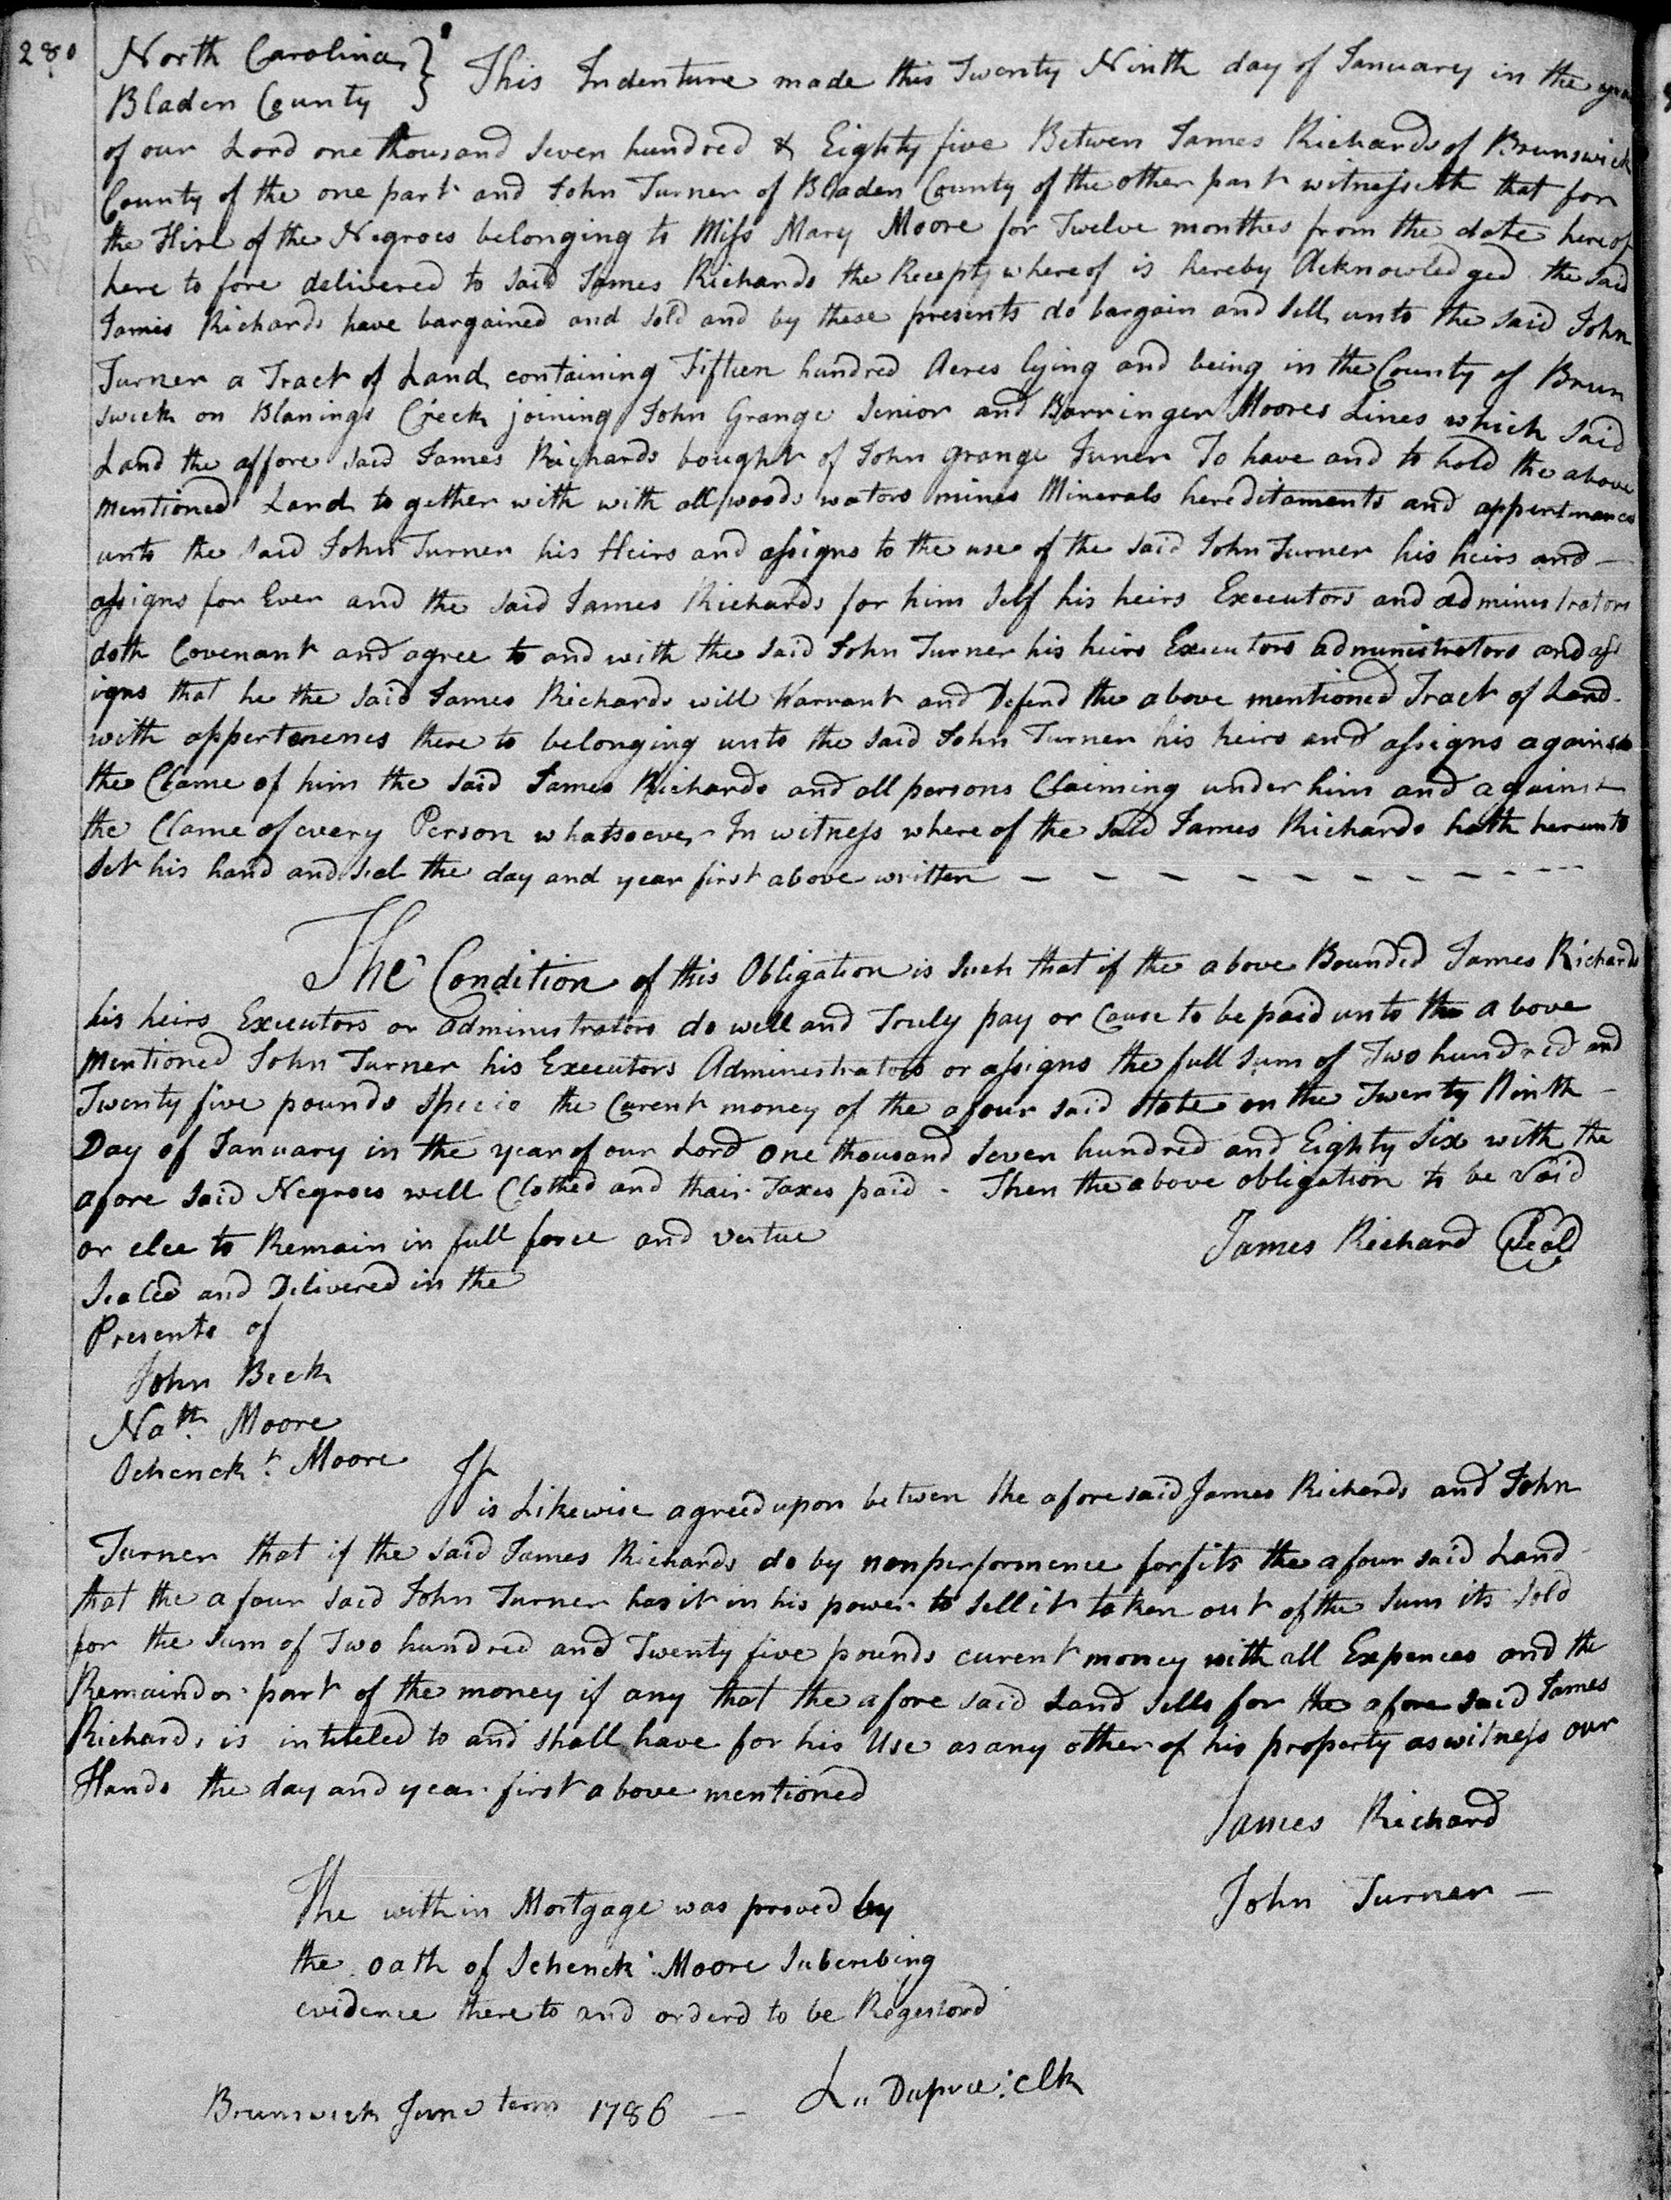 280
North Carolina } This Indenture made this Twenty Ninth day of January in the year
Bladen County }
of our Lord one thousand Seven hundred & Eighty five Betwen James Richards of Brunswick
County of the one part and John Turner of Bladen County of the other part witnesseth that for
the Hire of the Negroes belonging to Miss Mary Moore for Twelve monthes from the date hereof
here to fore delivered to said James Richards the Recepty whereof is hereby Acknowledged the said
James Richards have bargained and sold and by these presents do bargain and sell unto the said John
Turner a Tract of Land containing Fifteen hundred Acres lying and being in the County of Brun
swick on Blanings Creek joining John Grange Senior and Barringer Moores Lines which said
Land the affore said James Richards bought of John Grange Juner To have and to hold the above
mentioned Land to gether with with all woods waters mines Minerals hereditaments and appertinances
unto the said John Turner his Heirs and assigns to the use of the said John Turner his heirs and —
assigns for Ever and the said James Richards for him self his heirs Executors and administrators
doth Covenant and agree to and with the said John Turner his heirs Executors administrators and ass
igns that he the said James Richards will Warrant and Defend the above mentioned Tract of Land
with appertenenes there to belonging unto the said John Turner his heirs and assigns against
the Clame of him the said James Richards and all persons Claiming under him and against
the Clame of every Person whatsoever In witness where of the said James Richards hath herunto
set his hand and seal the day and year first above written — — — — — — — — — —
The Condition of this Obligation is such that if the above Bounded James Richards
his heirs Executors or administrators do well and Truly pay or Cause to be paid unto the above
mentioned John Turner his Executors Administrators or assigns the full sum of Two hundred and
Twenty five pounds Specio the Curent money of the afour said State on the Twenty Ninth
Day of January in the year of our Lord one thousand seven hundred and Eighty Six with the
afore said Negroes well Clothed and thair Taxes paid - Then the above obligation to be Void
or elce to Remain in full force and vertue James Richard Seal
Sealed and Delivered in the
Presents of
John Beck
Nath. Moore
Schenckt. Moore
It
is Likewise agreed upon betwen the afore said James Richards and John
Turner that if the said James Richards do by nonperformence forfits the afour said Land
that the afour said John Turner has it in his power to sell it taken out of the sum its sold
for the sum of Two hundred and Twenty five pounds curent money with all Expences and the
Remaindor part of the money if any that the afore said Land sells for the afore said James
Richards is intiteled to and shall have for his Use as any other of his property as witness our
Hands the day and year first above mentioned
James Richard
John Turner —
The within Mortgage was proved by
the oath of Schenck Moore Subcribing
evidence there to and orderd to be Regestord
Brunswick June term 1786 — L,, Dupree: Clk